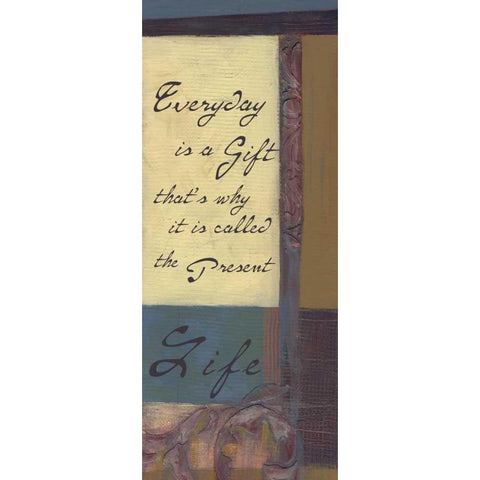 Everyday
is a Gift
that's why
it is called
the Present
Life